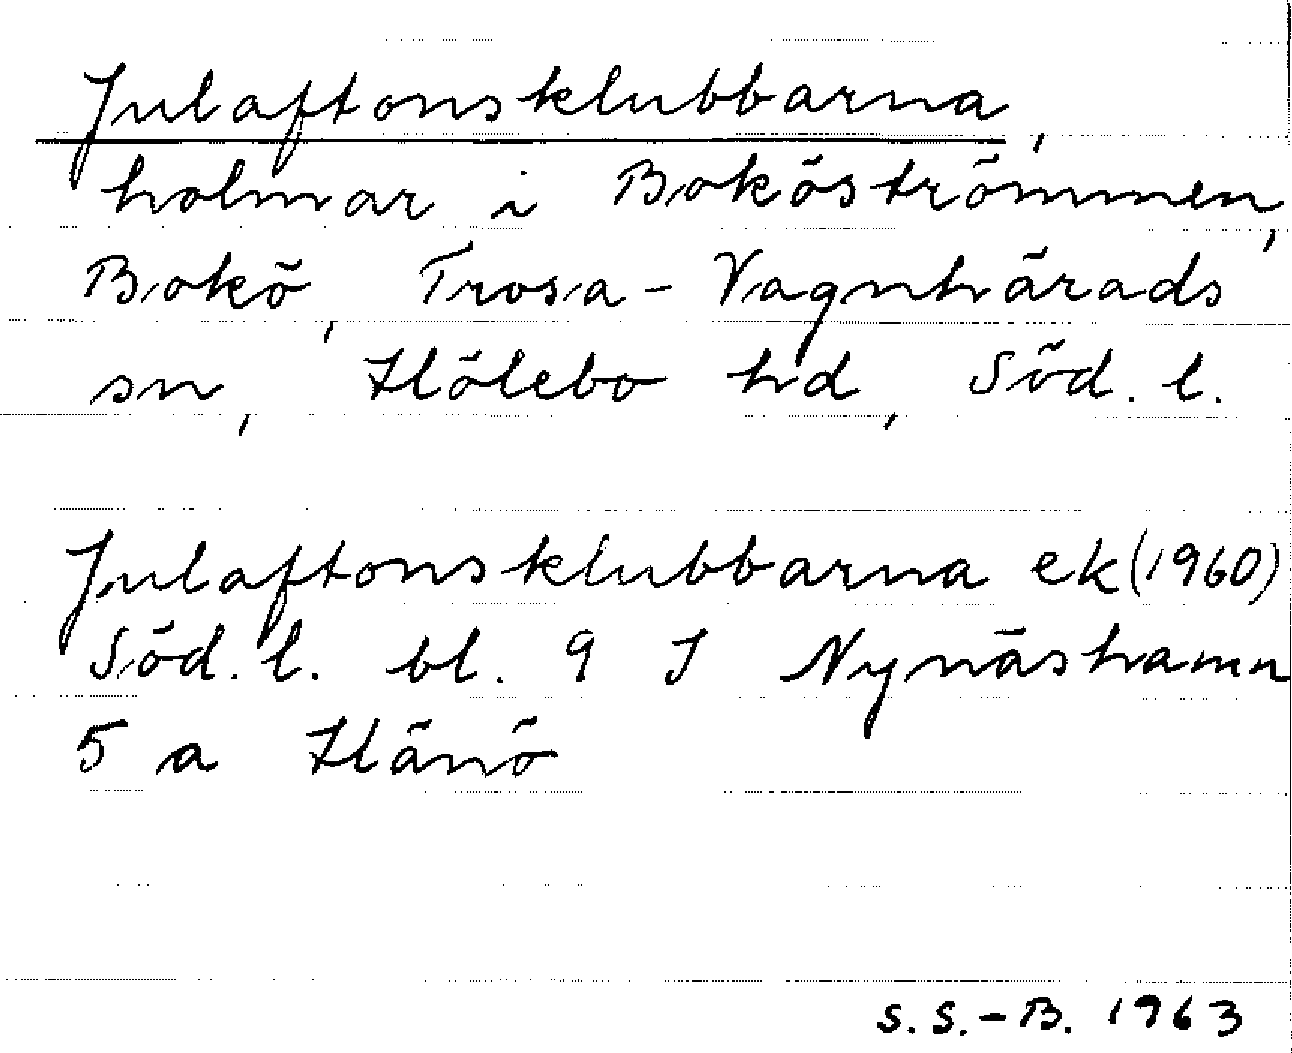 Julaftonsklubbarna,
holmar i Boköströmmen,
Bokö, Trosa-Vagnhärads
sn, Hölebo hd, Söd. l.
Julaftonsklubbarna ek (1960)
Söd. l. bl. 9 I Nynäshamn
5 a Hänö
S. S.-B. 1963